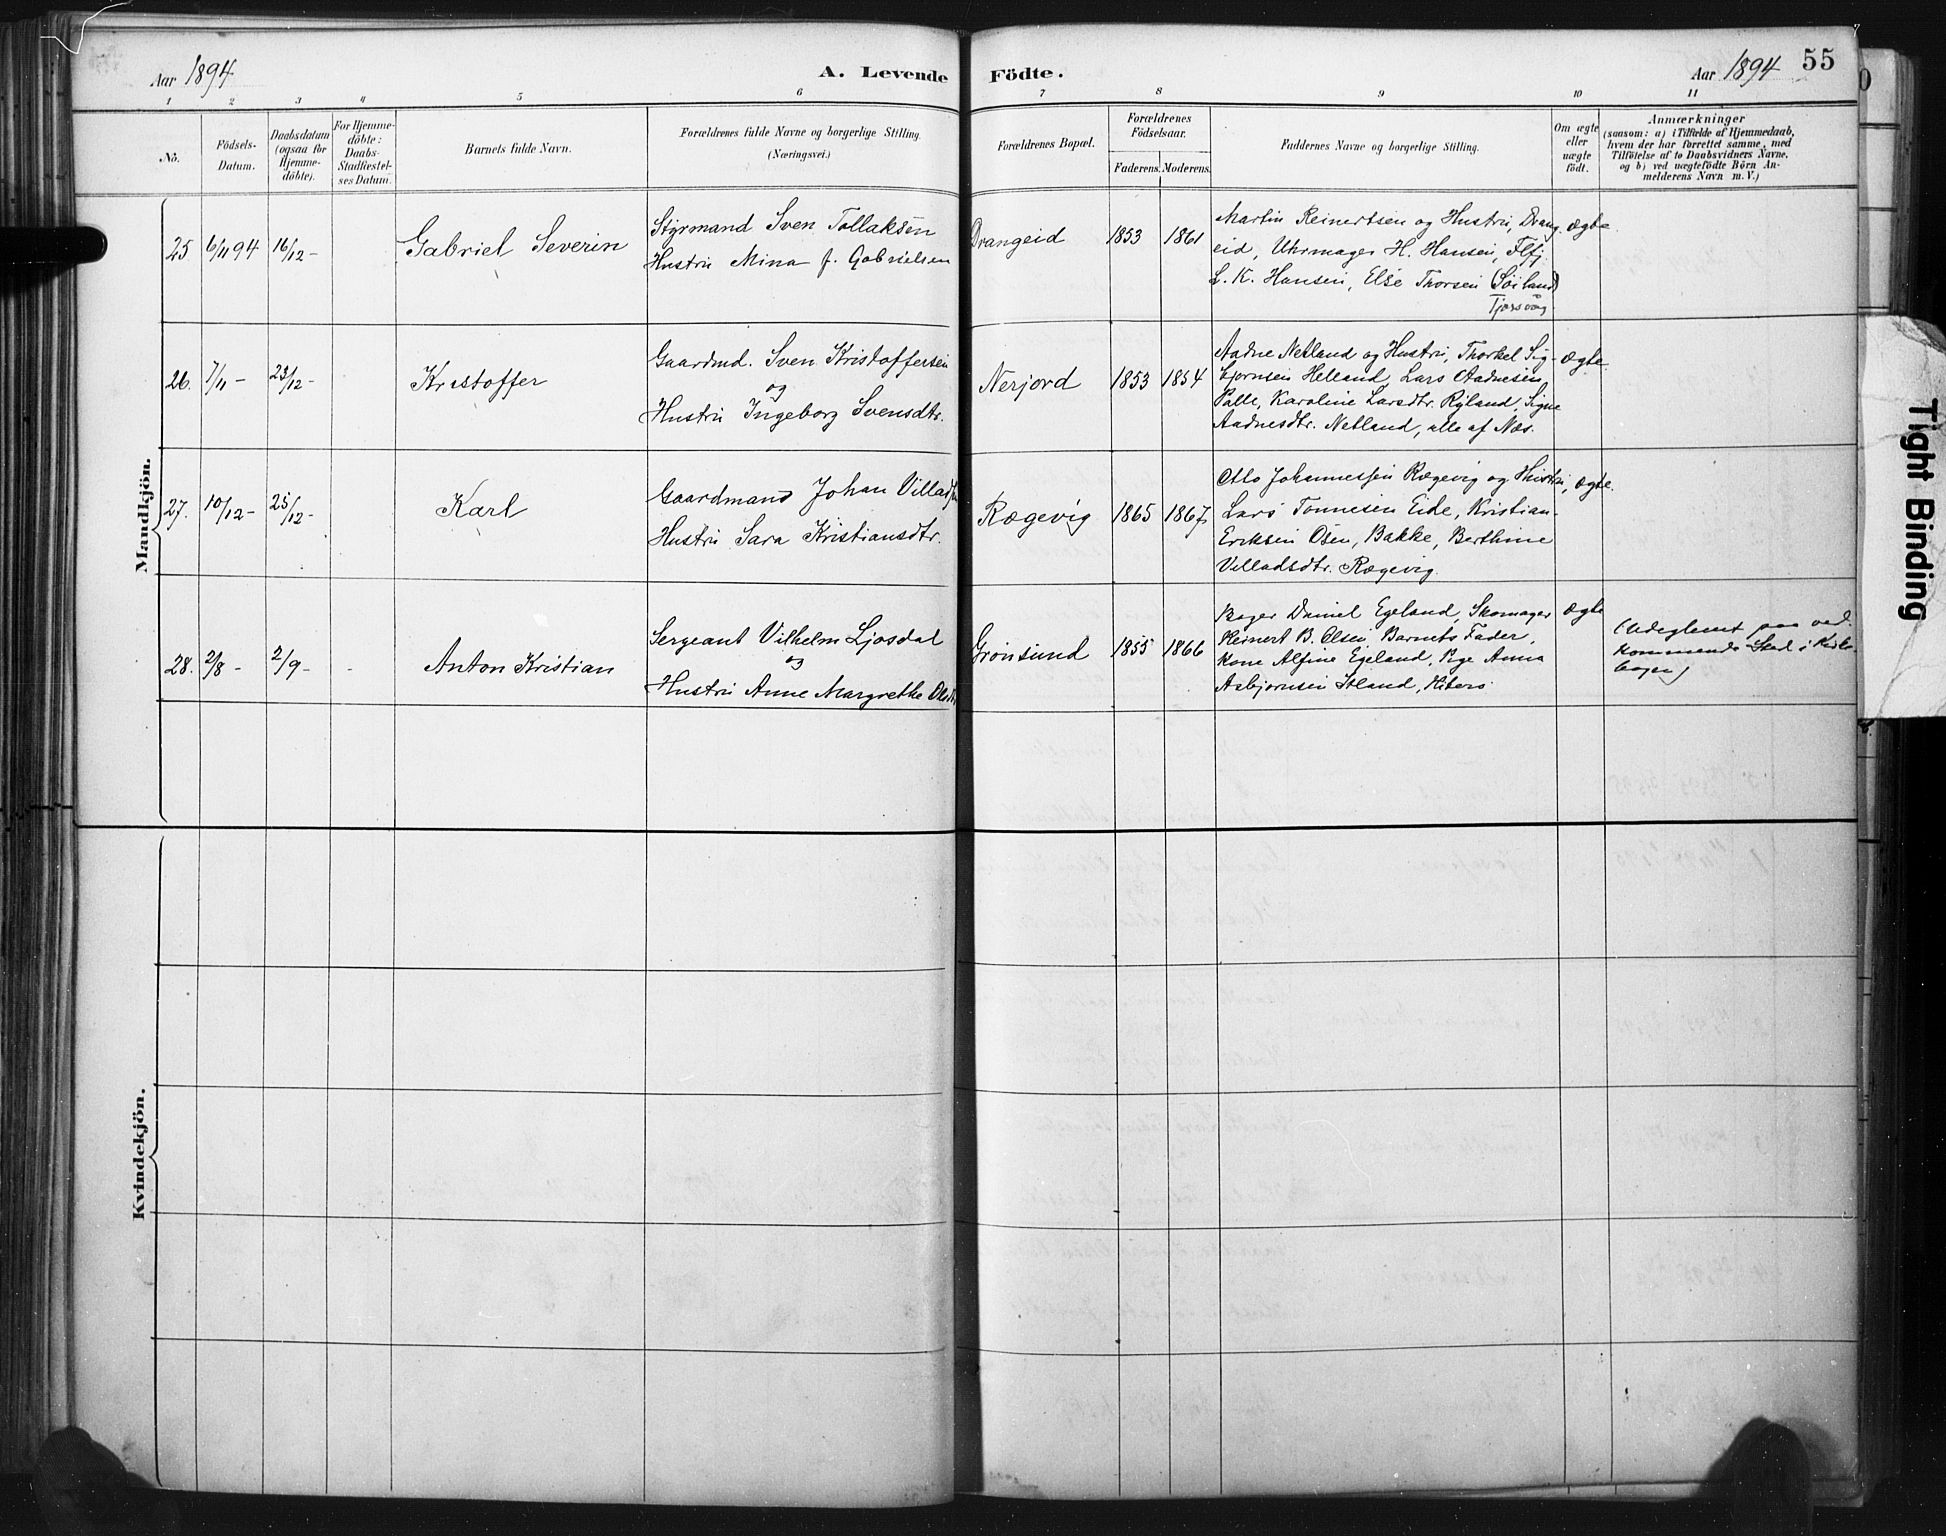 Aar 1894
A. Levende Födte.
Aar 1894 55
1 2 3 4 5 6 7 8 9 10 11
No.
Födsels-
Datum.
Daabsdatum
(ogsaa for
Hjemme-
döbte).
For Hjemme-
döbte:
Daabs-
Stadfæstel-
ses Datum.
Barnets fulde Navn.
Forældrenes fulde Navne og borgerlige Stilling.
(Næringsvei.)
Forældrenes Bopæl.
Forældrenes
Födselsaar.
Faderens. Moderens.
Faddernes Navne og borgerlige Stilling.
Om ægte
eller
uægte
födt.
Anmærkninger
(saasom: a) i Tilfælde af Hjemmedaab,
hvem der har forrettet samme, med
Tilföielse af to Daabsvidners Navne,
og b) ved uægtefödte Börn An-
melderens Navn m. V.)
Mandkjön.
25 6/11 94 16/12 -
Gabriel Severin
Styrmand Sven Tollaksen
Hustru Mina f. Gabrielsen
Drangeid
1853 1861
Martin Reinertsen og Hustru, Drang-
eid, Uhrmager H. Hansen, Flfj.
L. K. Hansen, Else Thorsen (Söiland)
Tjorsvåg
ægte
26. 7/11 - 23/12 -
Kristoffer
Gaardmd. Sven Kristoffersen
og
Hustru Ingeborg Svensdtr.
Nerjord
1853 1854
Aadne Netland og Hustru, Thorkel Sig-
bjørnsen Helland, Lars Aadnesen
Palle, Karoline Larsdtr. Ryland, Signe
Aadnesdtr. Netland, alle af Næs.
ægte
27. 10/12 - 25/12 -
Karl
Gaardmand Johan Villadsen
Hustru Sara Kristiansdtr.
Rægevig
1865 1867
Otto Johannessen Rægevig og Hustru,
Lars Tonnesen Eide, Kristian
Eriksen Osen, Bakke, Berthine
Villadsdtr. Rægevig.
ægte.
28. 2/8 - 2/9 - -
Anton Kristian
Sergeant Vilhelm Ljosdal
og
Hustru Anne Margrethe Olsdtr.
Grønsund
1855 1866
Bager Daniel Egeland, Skomager
Reinert B. Olsen, Barnets Fader,
Kone Alfine Egeland, Pige Anna
Asbjørnsen Stland, Hiterø
ægte
(Udeglemt paa ved-
kommende Sted i Kirke-
bogen)
Kvindekjön.
Tight Binding